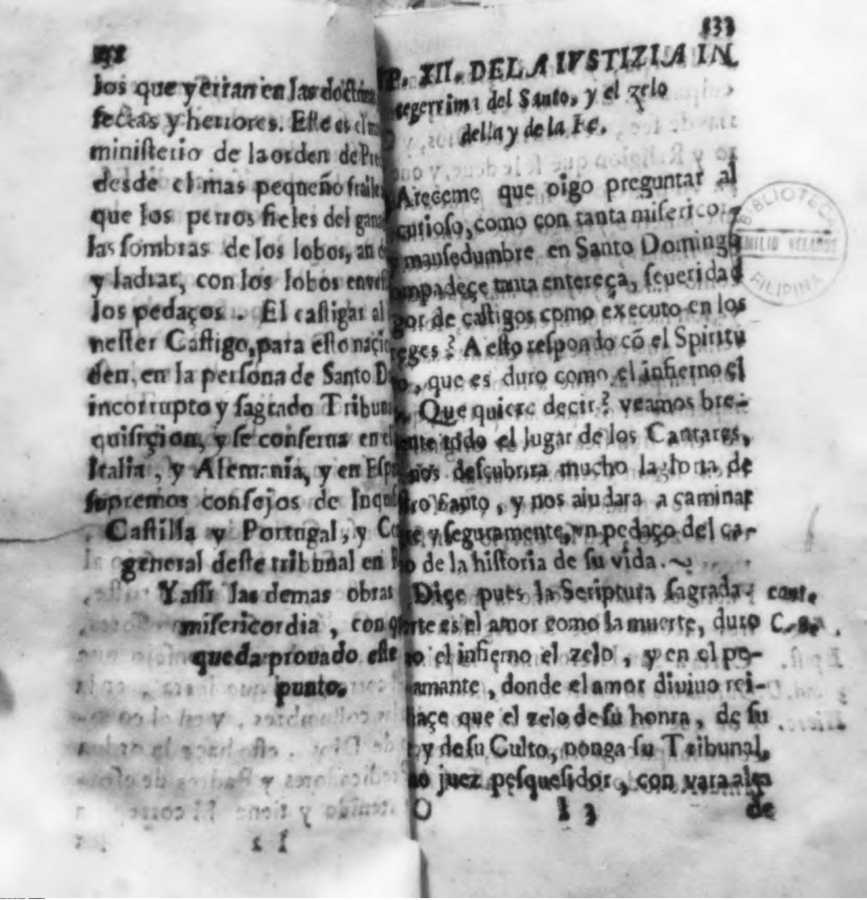 los que yerran en las doctrin
sectas y herrores. Este es el
ministerio de la orden de Pre
desde el mas pequeño fraile
que los perros fieles del gana
las sombras de los lobos, an
y ladrar, con los lobos
los pedaços. El castigar al
nester Castigo, para esto naçio
den, en la persona de Santo D
incorrupto y sagrado Tribuna
quisiçion, y se conserua en
Italia, y Alemania, y en Esp
supremos consejos de Inqui
Castilla y Portugal, y C
general deste tribunal en
Y assi las demas obras
misericordia, con q
queda prouado este
punto.
133
P. XII. DE LA IVSTIZIA IN
tegerrima del Santo, y el zelo
della y de la Fe.
Areçeme que oigo preguntar al
curioso, como con tanta miserico-
mansedumbre en Santo Domingo
mpadeçe tanta entereça, seueridad
gor de castigos como executo en los
reges? A esto respondo cõ el Spiritu
o, que es duro como el infierno el
Que quiere decir? veamos bre-
nte todo el lugar de los Cantares,
nos descubrira mucho la gloria, de
tro Santo, y nos aiudara a caminar
y seguramente, vn pedaço del ca-
o de la historia de su vida.
Diçe pues la Scriptura sagrada: cant.
rte es el amor como la muerte, duro C. 8.
o el infierno el zelo, y en el pe-
amante, donde el amor diuino rei-
haçe que el zelo de su honra, de su
y de su Culto, ponga su Tribunal,
o juez pesquesidor, con vara alça
I 3 de
BIBLIOTECA
EMILIO VELARDE
FILIPINA